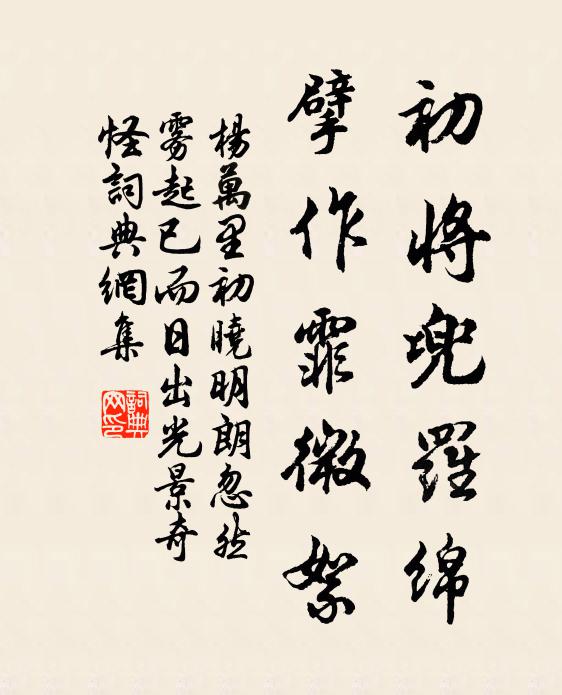 初將兜羅綿
擘作霏微絮
楊萬里初曉明朗忽然
雾起已而日出光景奇
怪詞典網集
詞典网印